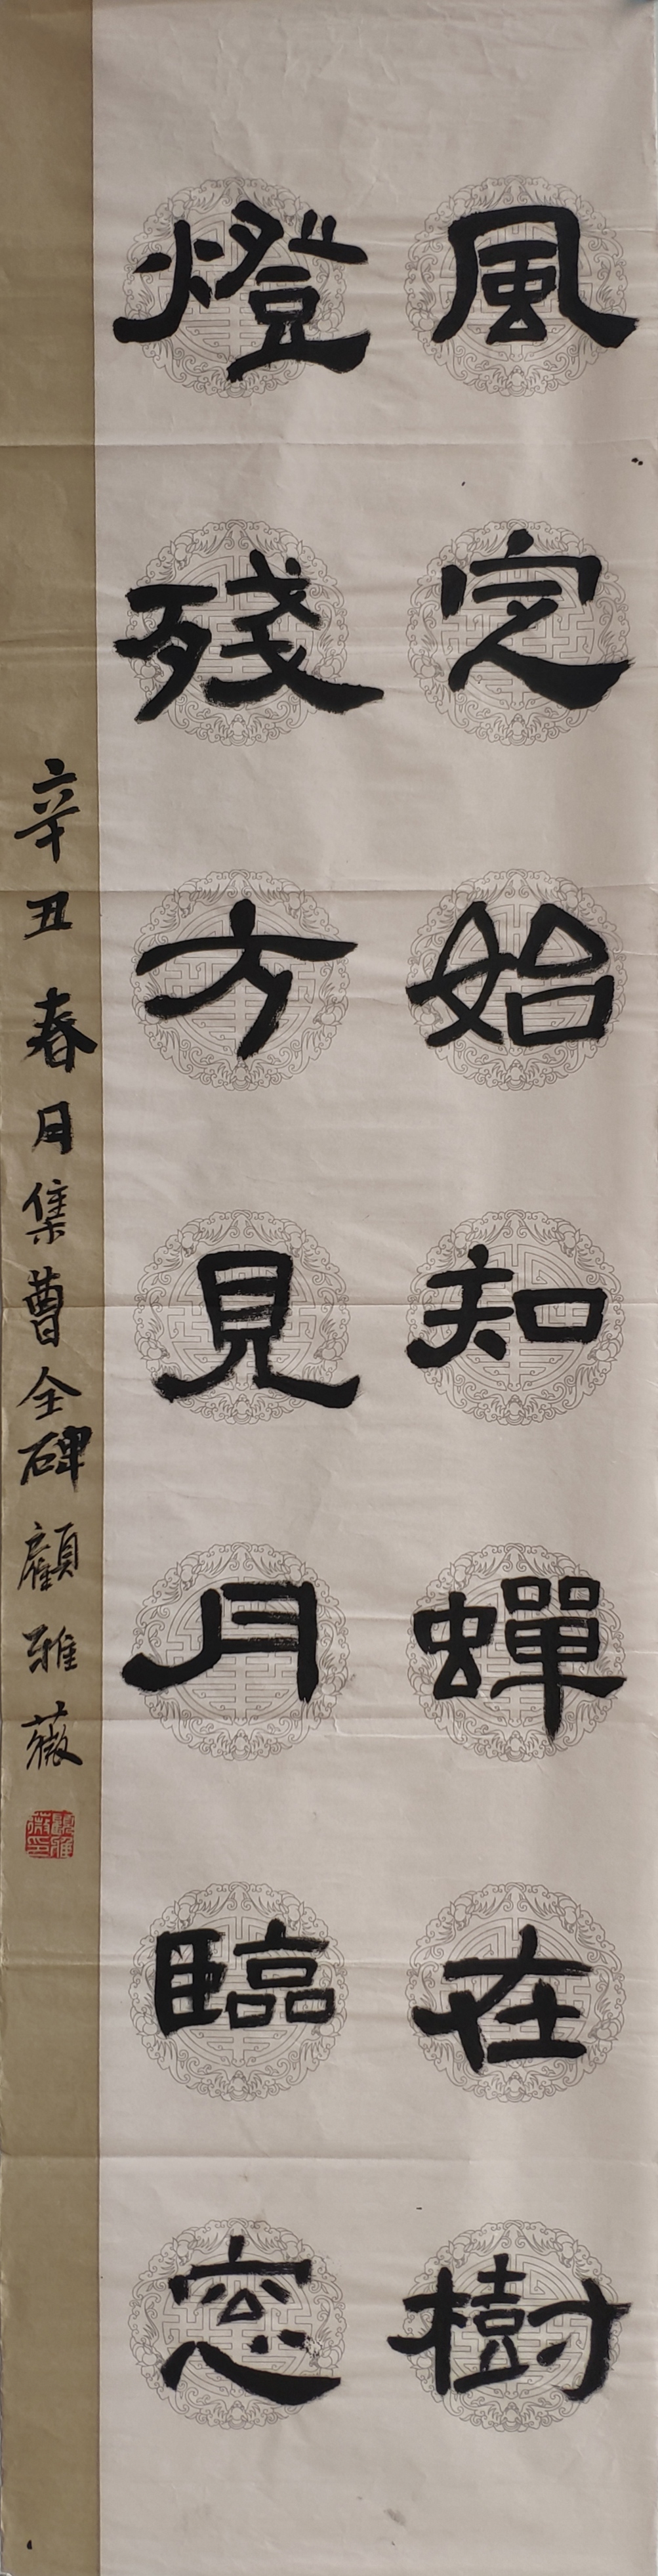 風定始知蟬在樹
燈殘方見月臨窓
辛丑春月集曹全碑顧雅薇
顧雅薇印